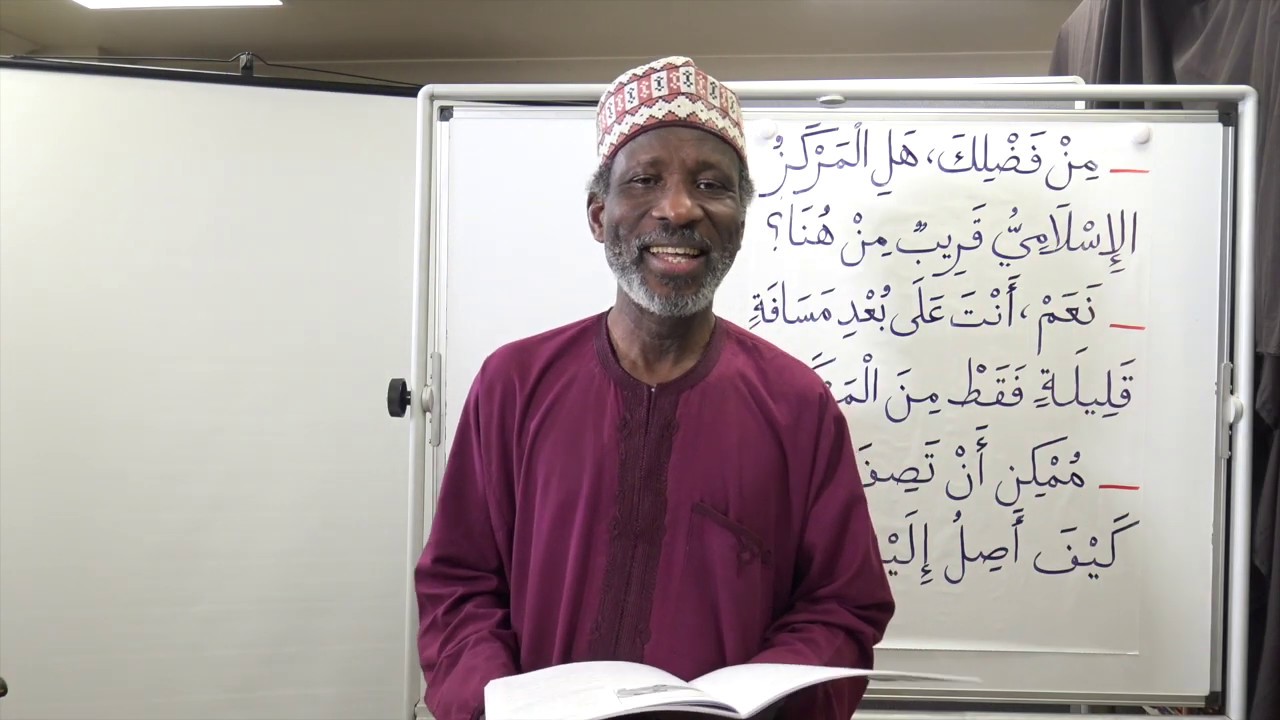 ـ مِنْ فَضْلِكَ، هَلِ الْمَرْكَزُ
الإِسْلَامِيُّ قَرِيبٌ مِنْ هُنَا؟
ـ نَعَمْ، أَنْتَ عَلَى بُعْدِ مَسَافَةٍ
قَلِيلَةٍ فَقَطْ مِنَ
ـ مُمْكِن أَنْ
كَيْفَ أَصِلُ